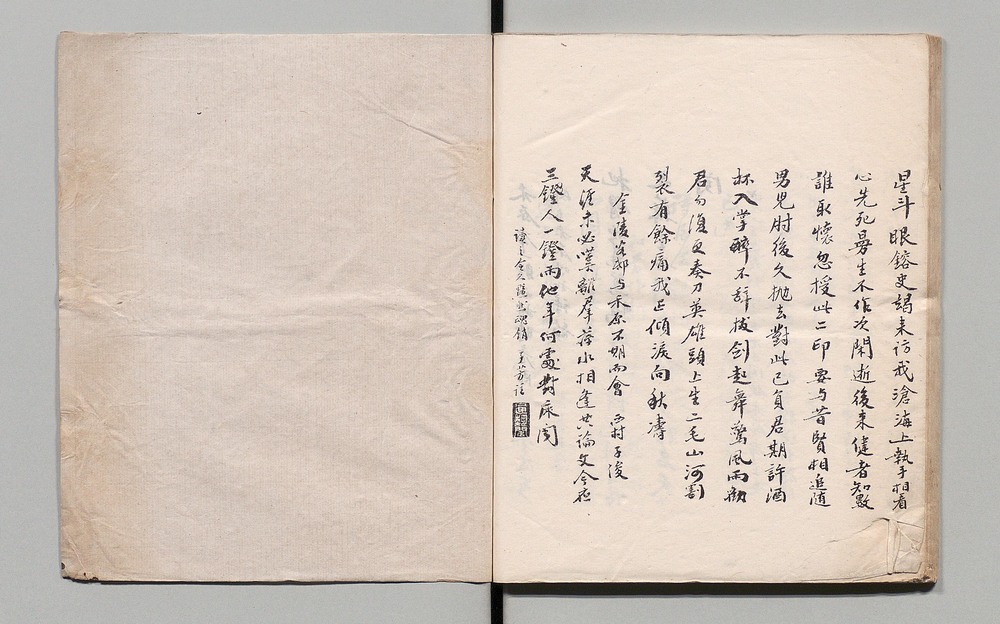 星斗眼鎔史竭来訪我滄海上執手相看
心先死曇生不作次閑逝後来健者知數
誰取懷忽授此二印要与昔賢相追随
男児肘後久抛去對此已負君期許酒
杯入掌醉不辞拔剑起舞驚風雨勸
君勿復更奏刀英雄頭上生二毛山河割
裂有餘痛我正傾淚向秋濤
金陵客邸与禾原不期而會 西村子俊
天涯未必嘆離羣萍水相逢共論文今夜
三鐙人一鐙雨他年何處對床聞
讀之令人